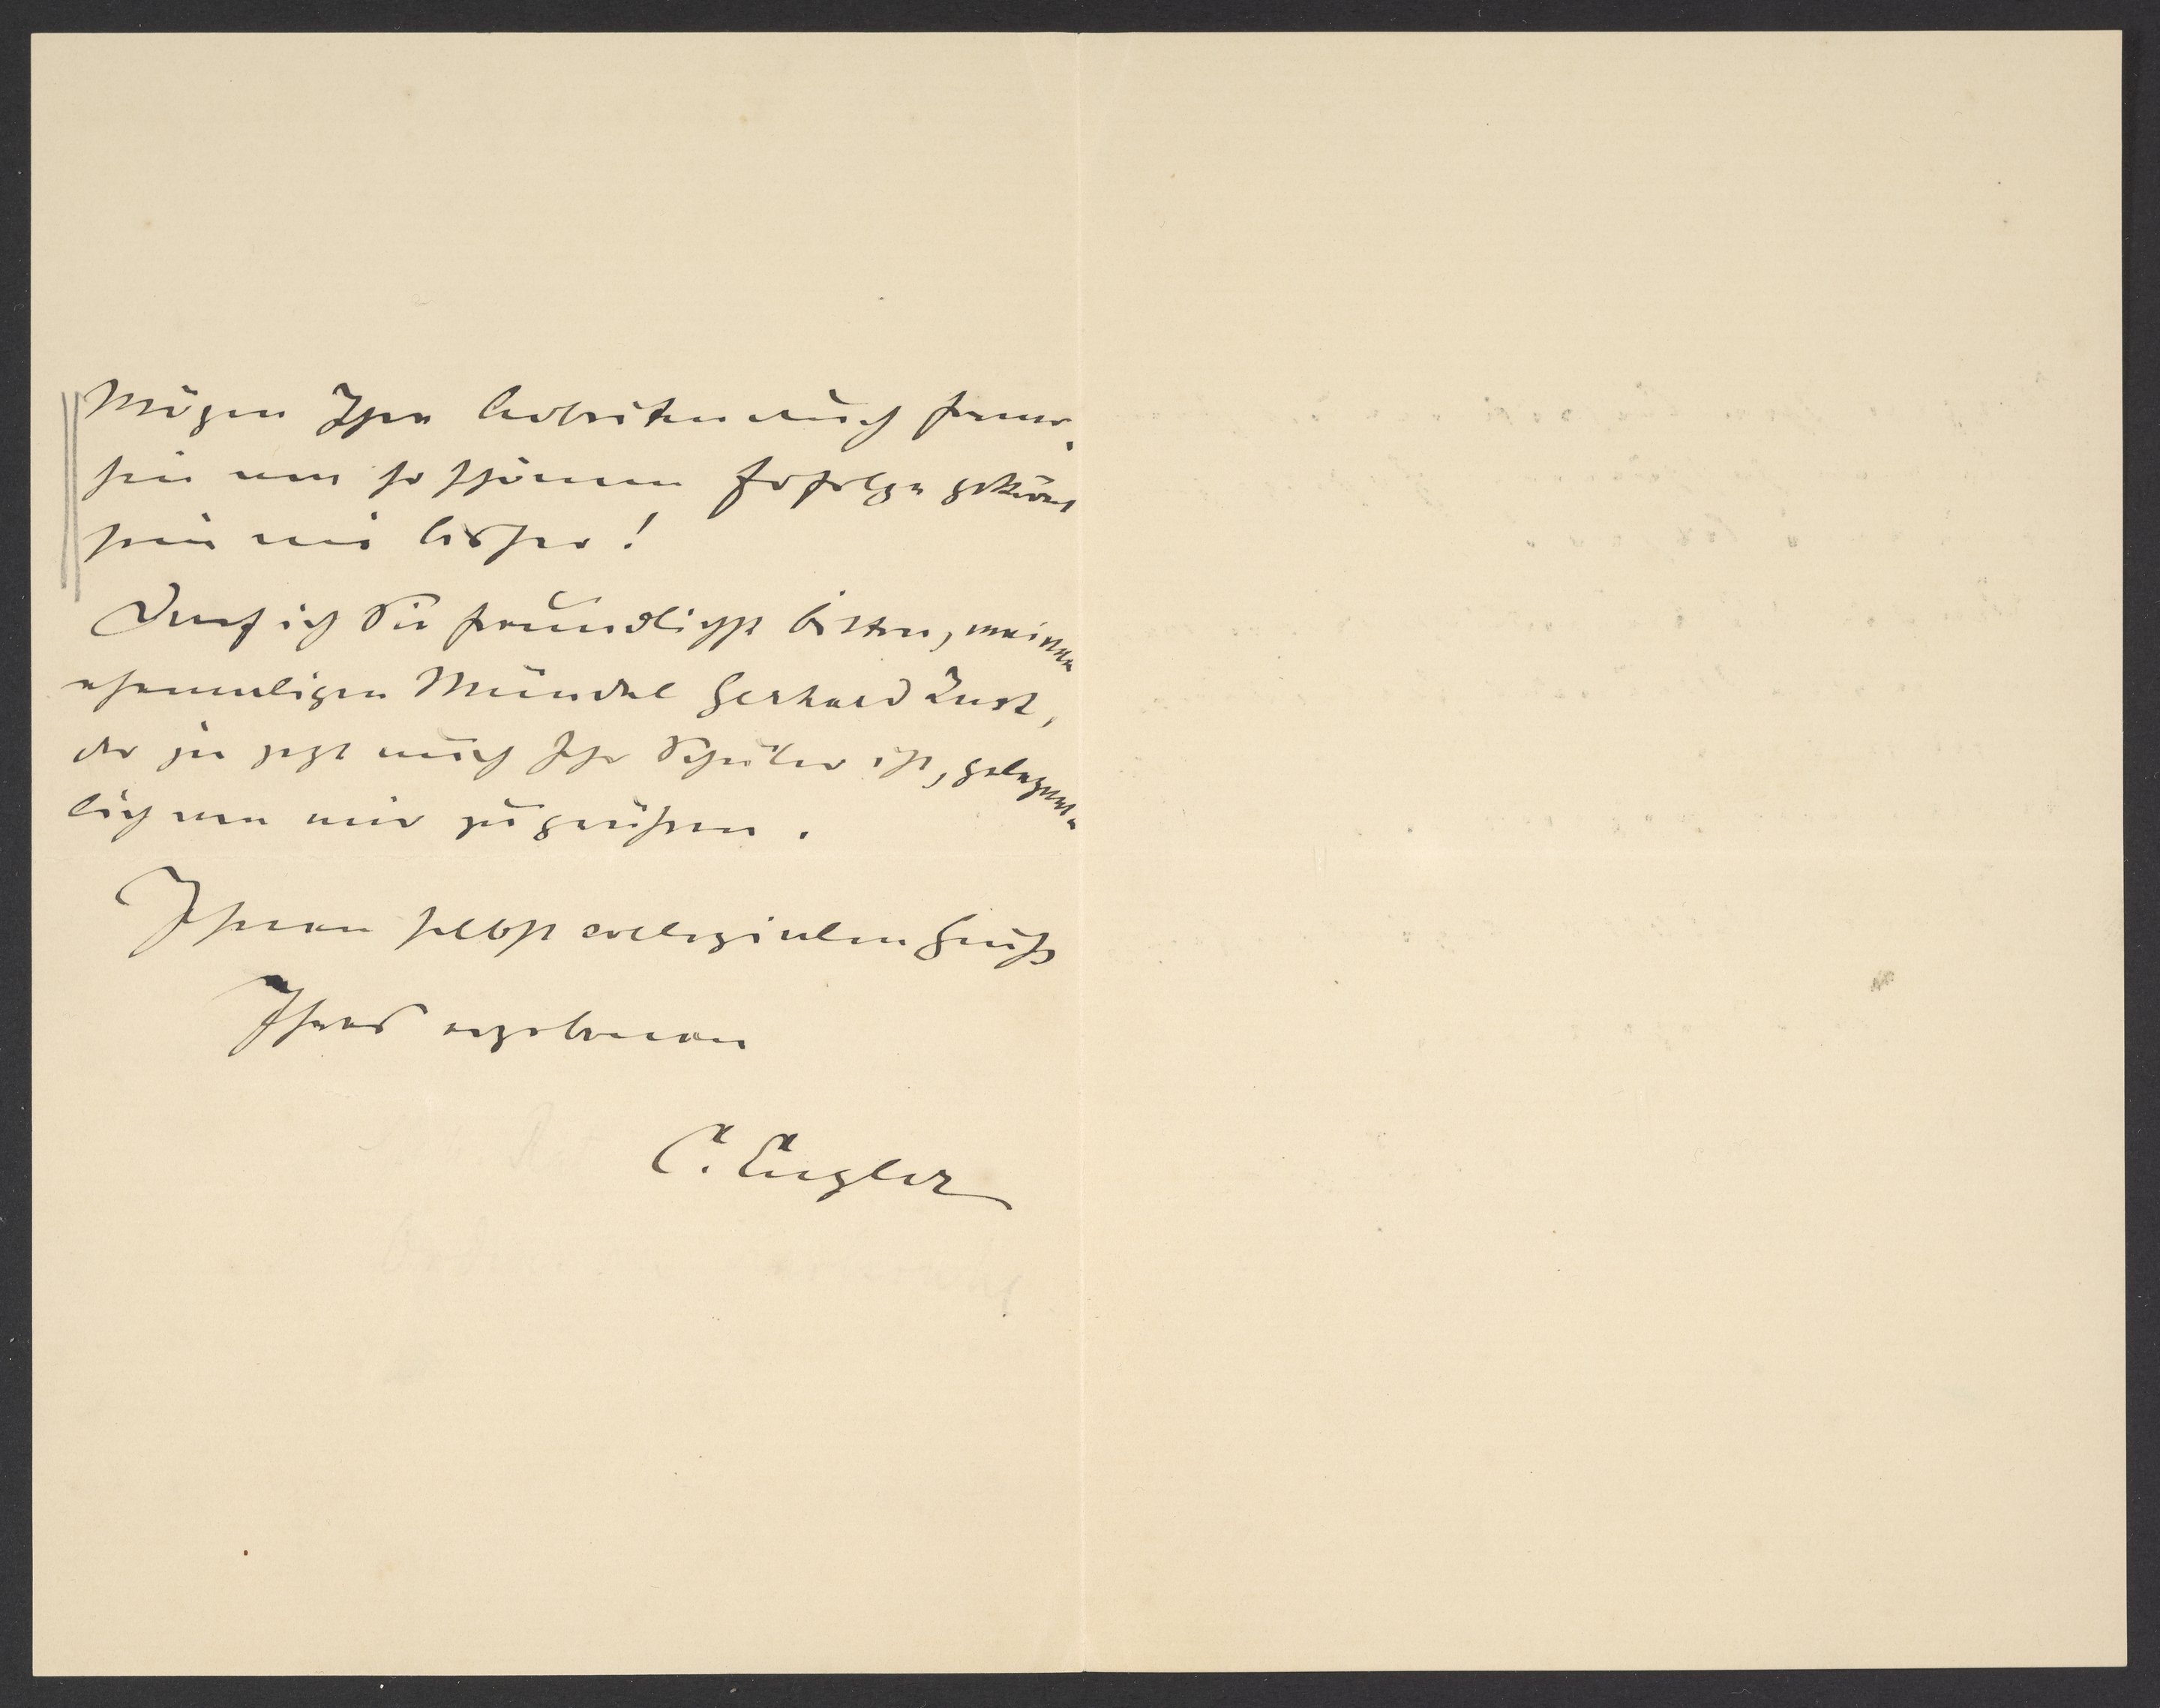 Mögen Ihre Arbeiten auch ferner-
hin von so schönem Erfolge gekrönt
sein wie bisher!
Darf ich Sie freundlichst bitten, meinen
ehemaligen Mündel Gerhard Just,
der ja jetzt auch Ihr Schüler ist, gelegent-
lich von mir zu grüßen.
Ihnen selbst collegialen Gruß
Ihres ergebenen
C. Engler